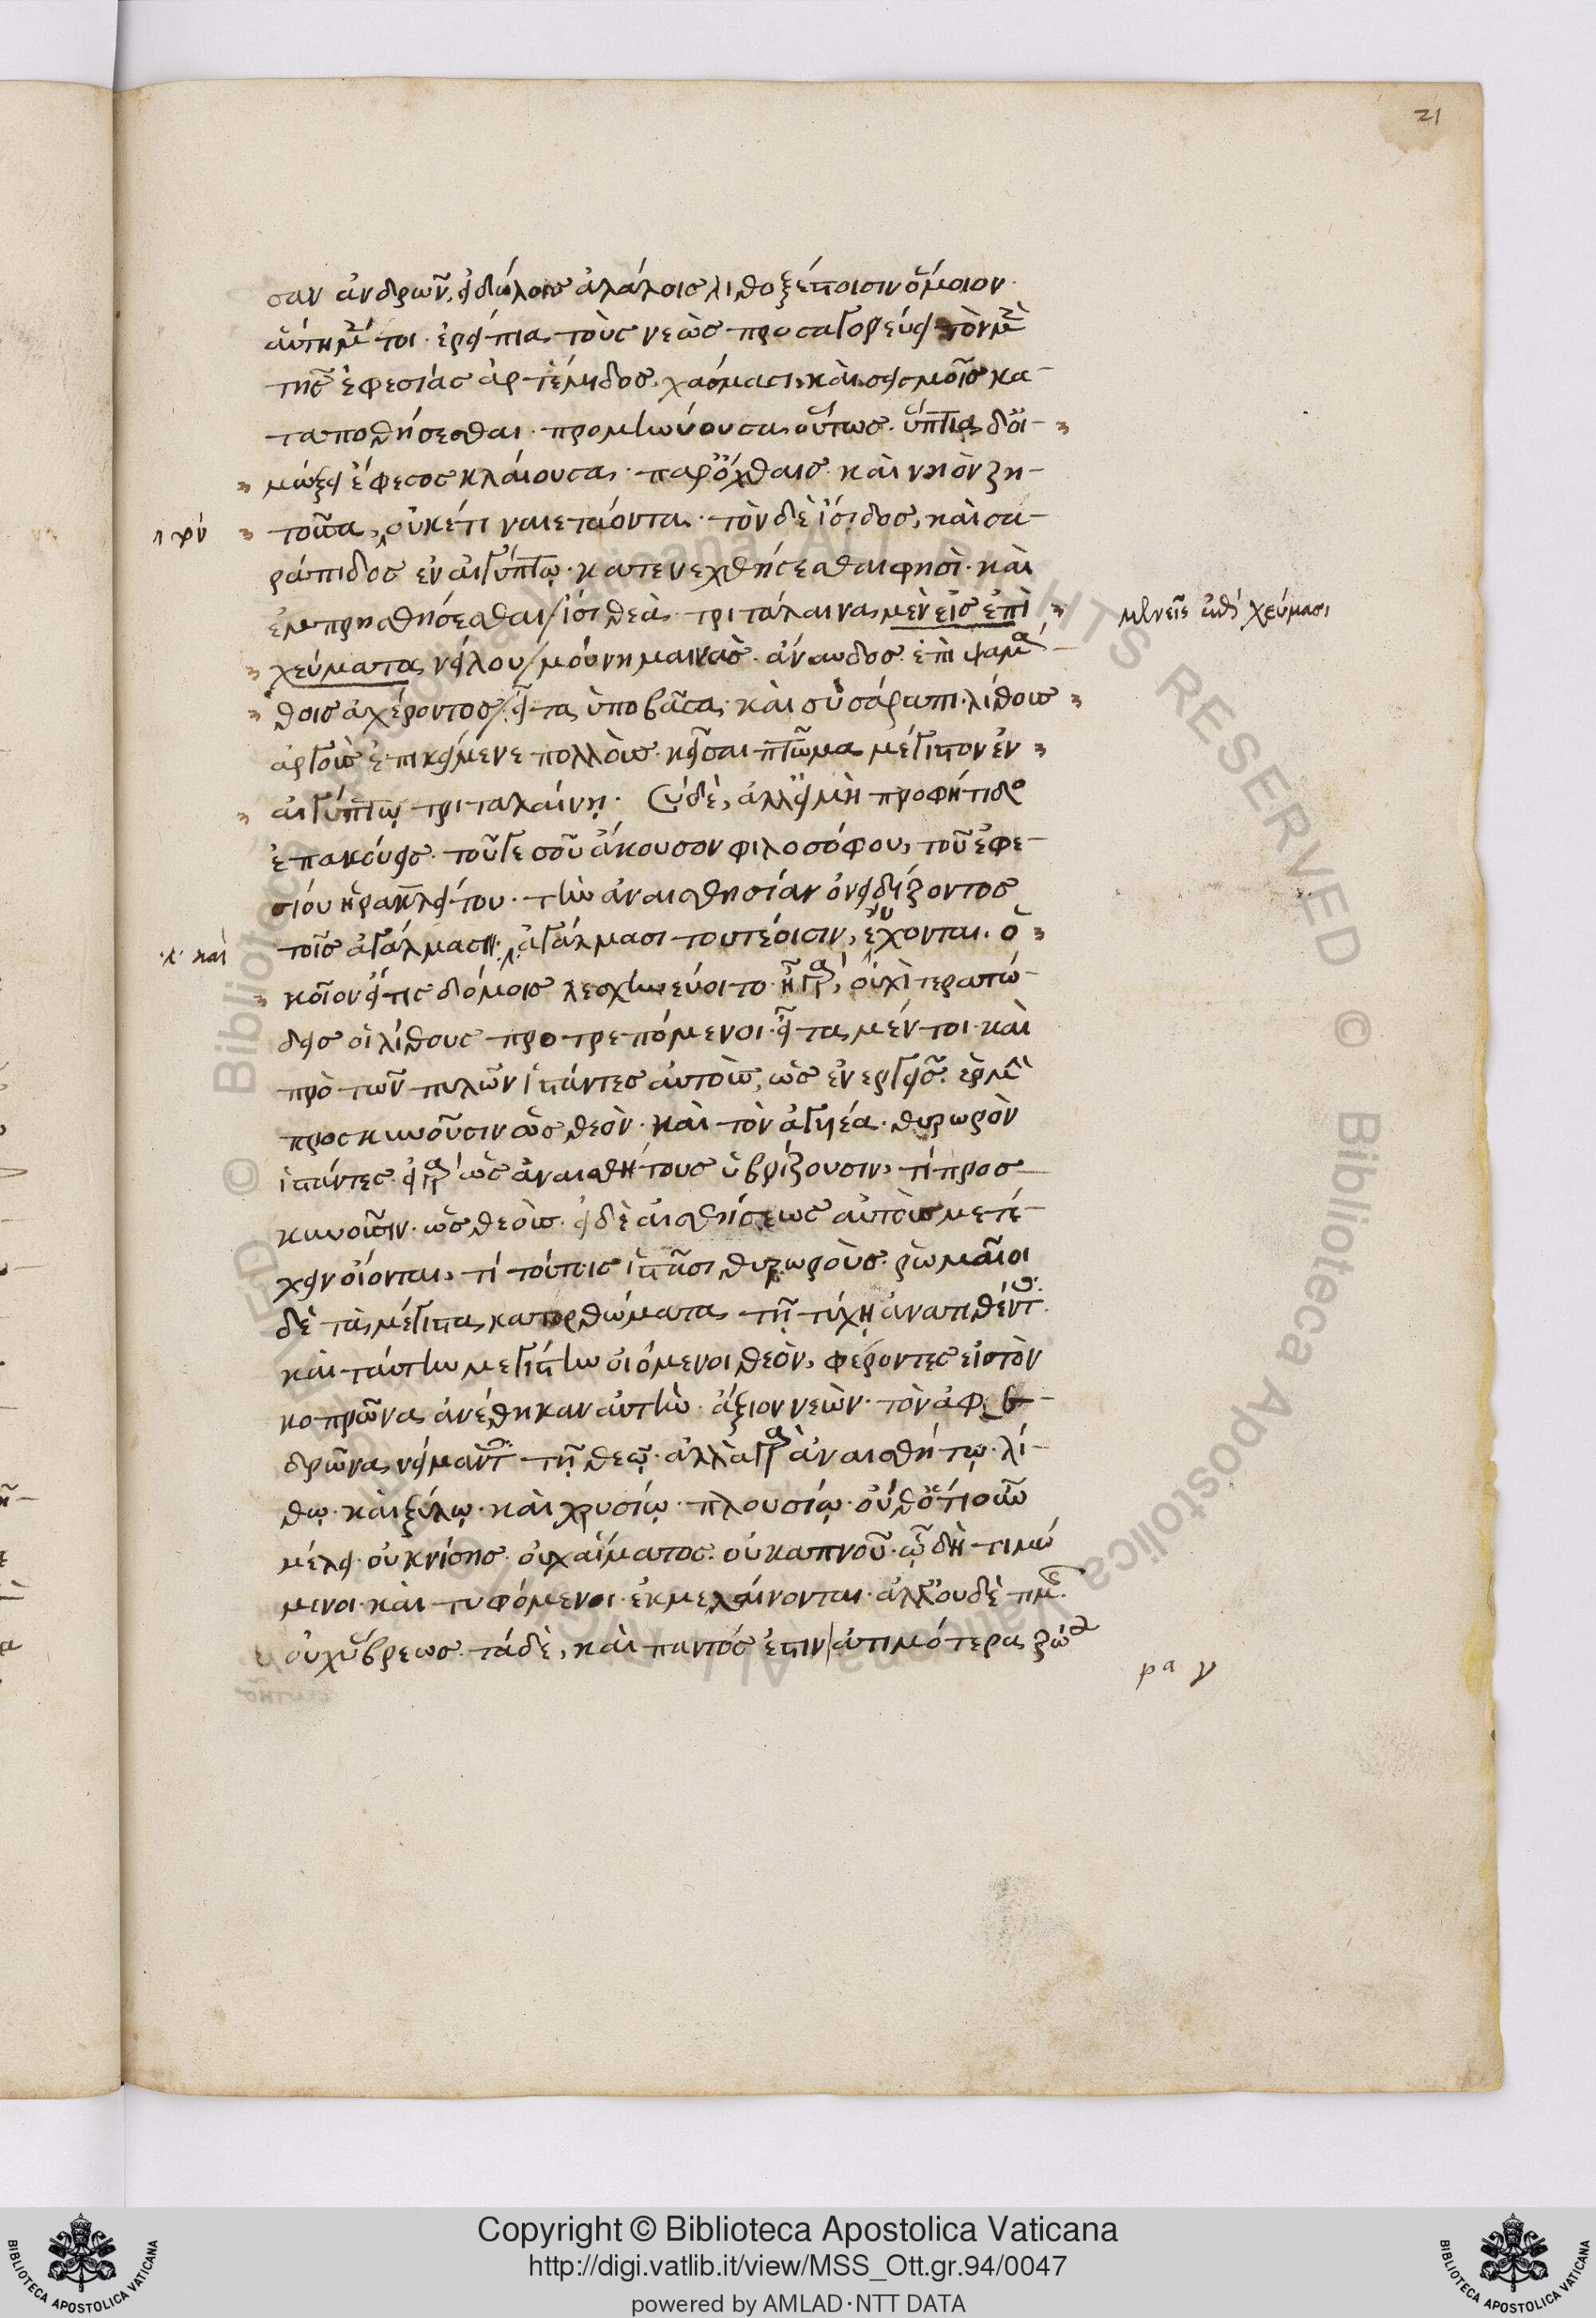 21
σαν ἀνδρῶν, εἰδώλοις ἀλάλοις λιθοξέστοισιν ὅμοιον·
αὕτη μέν τοι ἐρείπια τοὺς νεὼς προσαγορεύει τὸν μὲν
τῆς ἐφεσίας ἀρτέμιδος, χάσμασι καὶ σεισμοῖς κα-
ταποθήσεσθαι· προμηνύουσα οὕτως· ὕπτια δ' οἰ-
μώξει ἔφεσος κλαίουσα παρ' ὄχθαις· καὶ νηὸν ζη-
τοῦσα, οὐκέτι ναιετάοντα· τὸν δὲ ἴσιδος, καὶ σα-
ράπιδος ἐν αἰγύπτῳ· κατενεχθήσεσθαι φησὶ· καὶ
ἐμπρησθήσεσθαι/ ἴσι θεὰ τριτάλαινα μὲν εἰς ἐπὶ
μενεῖς ἐπὶ χεύμασι
χεύματα νείλου/ μούνη μαινὰς ἄναυδος ἐπὶ ψαμά-
θοις ἀχέροντος/ εἶτα ὑποβᾶσα· καὶ σὺ σάραπι λίθοις
ἀργοῖς ἐπικείμενε πολλοῖς· κεῖσαι πτῶμα μέγιστον ἐν
αἰγύπτῳ τριταλαίνῃ· Σὺ δὲ, ἀλλ' εἰ μὴ προφήτιδος
ἐπακούεις· τοῦ γε σοῦ ἄκουσον φιλοσόφου, τοῦ ἐφε-
σίου ἡρακλείτου· τὴν ἀναισθησίαν ὀνειδίζοντος
τοῖς ἀγάλμασιν· ἀγάλμασι τουτέοισιν, εὔχονται· ὁ-
κ̀ καὶ
κοῖον εἴ τις δόμοις λεσχηνεύοιτο· ἢ γὰρ, οὐχὶ τερατώ-
δεις οἱ λίθους προτρεπόμενοι· εἶτα μέν τοι καὶ
πρὸ τῶν πυλῶν ἱστάντες αὐτοὺς, ὡς ἐνεργεῖς· ἑρμῆν
προσκυνοῦσιν ὡς θεὸν· καὶ τὸν ἀγυιέα θυρωρὸν
ἱστάντες· εἰ γὰρ ὡς ἀναισθήτους ὑβρίζουσιν, τί προσ-
κυνοῦσιν ὡς θεοὺς· εἰ δὲ αἰσθήσεως αὐτοὺς μετέ-
χειν οἴονται, τί τούτους ἱστᾶσι θυρωροὺς· ῥωμαῖοι
δὲ τὰ μέγιστα κατορθώματα τῇ τύχῃ ἀνατιθέντες·
καὶ ταύτην μεγίστην οἰόμενοι θεὸν, φέροντες εἰς τὸν
κοπρῶνα ἀνέθηκαν αὐτὴν· ἄξιον νεὼν· τὸν ἀφε-
δρῶνα νείμαντες τῇ θεῷ· ἀλλὰ γὰρ ἀναισθήτῳ λί-
θῳ· καὶ ξύλῳ· καὶ χρυσίῳ πλουσίῳ· οὐδ' ὁτιοῦν
μέλει· οὐ κνίσης· οὐχ αἵματος· οὐ καπνοῦ· ᾧ δὴ τιμώ-
μενοι καὶ τυφόμενοι ἐκμελαίνονται· ἀλλ' οὐδὲ τιμῆς·
οὐχ ὕβρεως· τὰ δὲ, καὶ παντός ἐστιν ἀτιμότερα ζώου
Copyright © Biblioteca Apostolica Vaticana
http://digi.vatlib.it/view/MSS_Ott.gr.94/0047
powered by AMLAD·NTT DATA